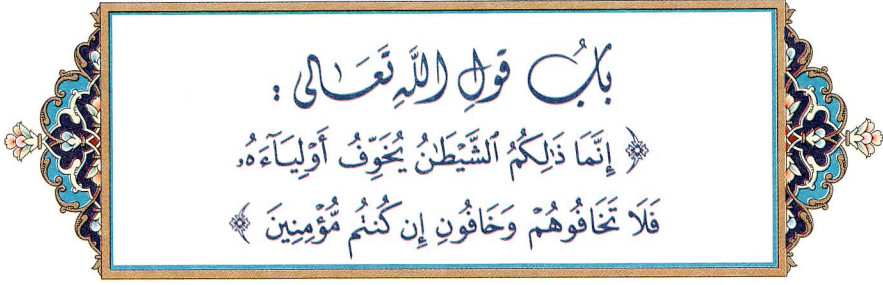 بَابُ قَوْلِ اللَّهِ تَعَالَى :
﴿ إِنَّمَا ذَٰلِكُمُ ٱلشَّيْطَٰنُ يُخَوِّفُ أَوْلِيَآءَهُۥ
فَلَا تَخَافُوهُمْ وَخَافُونِ إِن كُنتُم مُّؤْمِنِينَ ﴾